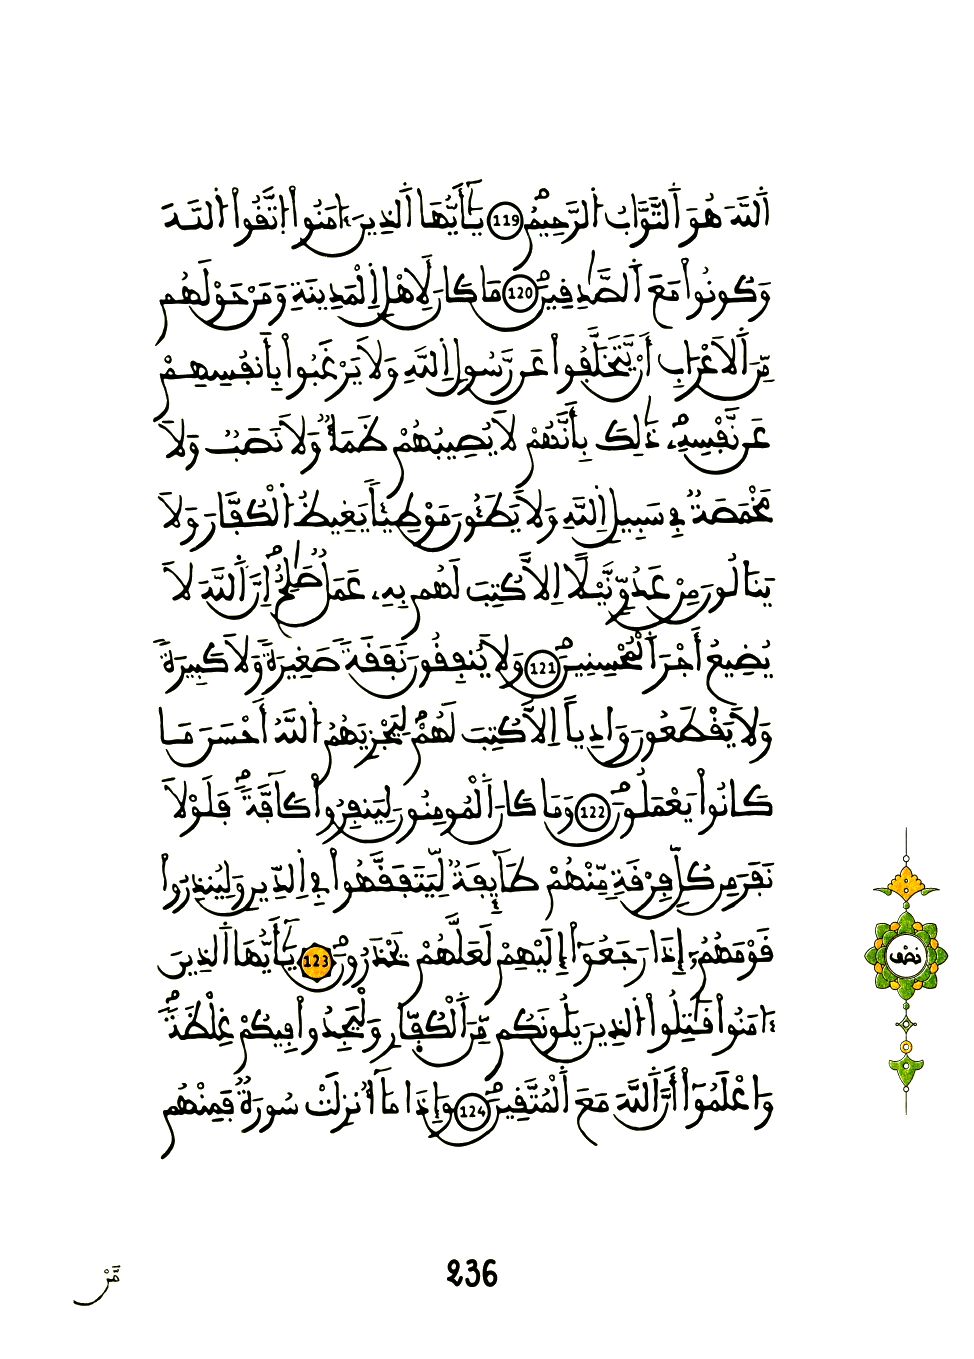 اَ۬للَّهَ هُوَ اَ۬لتَّوَّابُ اُ۬لرَّحِيمُۖ 119 يَٰٓأَيُّهَا اَ۬لذِينَ ءَامَنُواْ اُ۪تَّقُواْ اُ۬للَّهَ
وَكُونُواْ مَعَ اَ۬لصَّٰدِقِينَۖ 120 مَا كَانَ لِأَهْلِ اِ۬لْمَدِينَةِ وَمَنْ حَوْلَهُم
مِّنَ اَ۬لَاعْرَابِ أَنْ يَّتَخَلَّفُواْ عَن رَّسُولِ اِ۬للَّهِ وَلَا يَرْغَبُواْ بِأَنفُسِهِمْ
عَن نَّفْسِهِۦۖ ذَٰلِكَ بِأَنَّهُمْ لَا يُصِيبُهُمْ ظَمَأٌ وَلَا نَصَبٌ وَلَا
مَخْمَصَةٌ فِے سَبِيلِ اِ۬للَّهِ وَلَا يَطَـُٔونَ مَوْطِئاً يَغِيظُ اُ۬لْكُفَّارَ وَلَا
يَنَالُونَ مِنْ عَدُوّٖ نَّيْلاً اِلَّا كُتِبَ لَهُم بِهِۦ عَمَلٞ صَٰلِحٌۖ اِنَّ اَ۬للَّهَ لَا
يُضِيعُ أَجْرَ اَ۬لْمُحْسِنِينَۖ 121 وَلَا يُنفِقُونَ نَفَقَةٗ صَغِيرَةٗ وَلَا كَبِيرَةٗ
وَلَا يَقْطَعُونَ وَادِياً اِلَّا كُتِبَ لَهُمْۖ لِيَجْزِيَهُمُ اُ۬للَّهُ أَحْسَنَ مَا
كَانُواْ يَعْمَلُونَۖ 122 وَمَا كَانَ اَ۬لْمُومِنُونَ لِيَنفِرُواْ كَآفَّةٗۖ فَلَوْلَا
نَفَرَ مِن كُلِّ فِرْقَةٖ مِّنْهُمْ طَآئِفَةٞ لِّيَتَفَقَّهُواْ فِے اِ۬لدِّينِ وَلِيُنذِرُواْ
قَوْمَهُمُۥٓ إِذَا رَجَعُوٓاْ إِلَيْهِمْ لَعَلَّهُمْ يَحْذَرُونَۖ 123 يَٰٓأَيُّهَا اَ۬لذِينَ
ءَامَنُواْ قَٰتِلُواْ اُ۬لذِينَ يَلُونَكُم مِّنَ اَ۬لْكُفّ۪ارِ وَلْيَجِدُواْ فِيكُمْ غِلْظَةٗۖ
وَاعْلَمُوٓاْ أَنَّ اَ۬للَّهَ مَعَ اَ۬لْمُتَّقِينَۖ 124 وَإِذَا مَآ أُنزِلَتْ سُورَةٞ فَمِنْهُم
نصف
236
مَّنْ